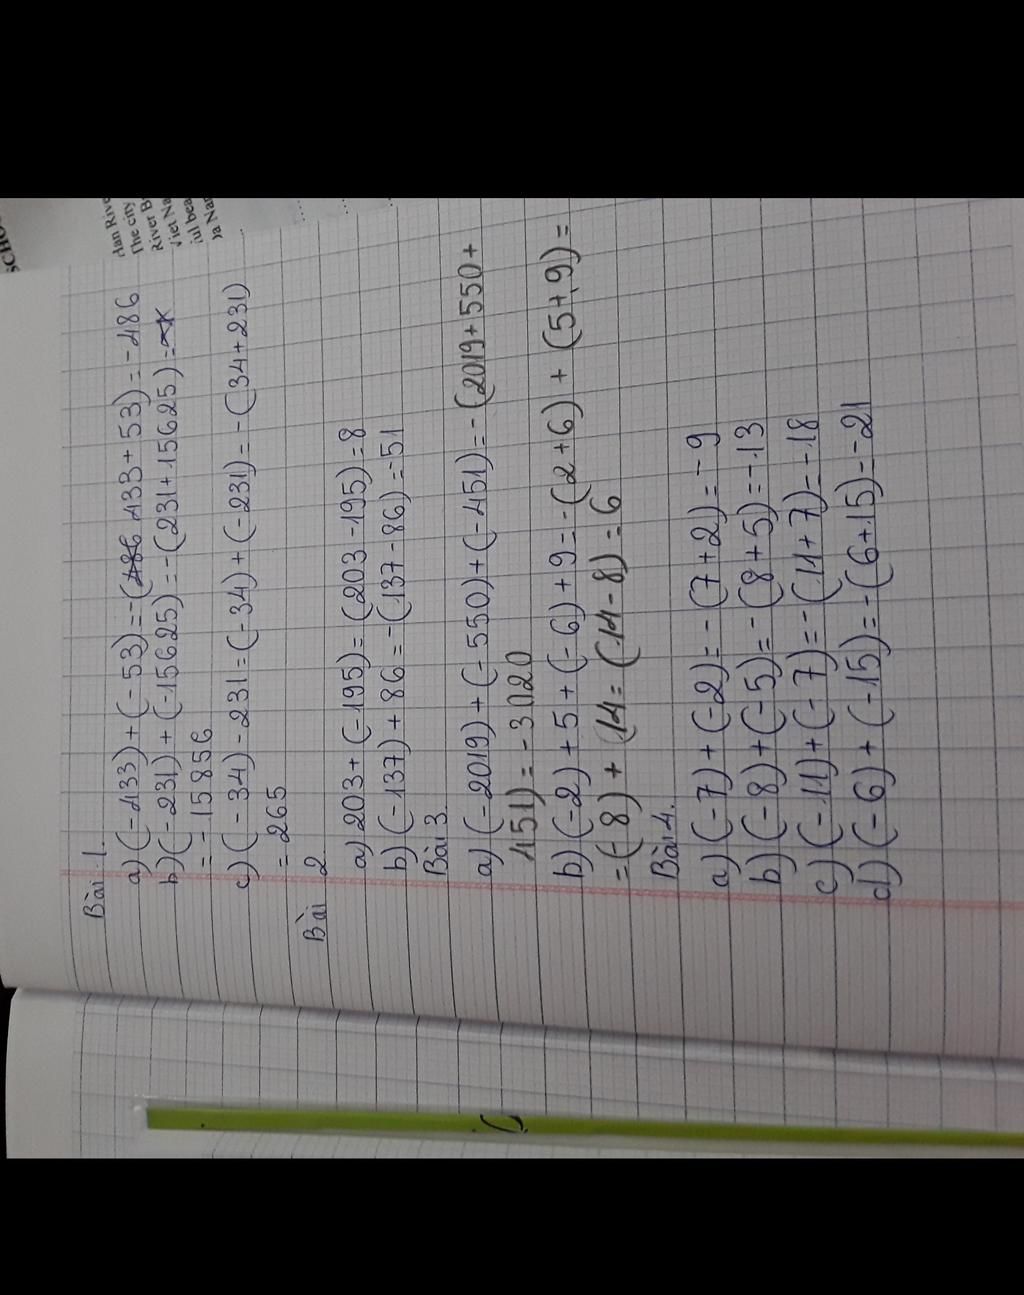 SCHO
Han Rive
The city
River B
Viet Na
iul bea
Da Nan
Bài 1.
a) (-433) + (-53) = -(433 + 53) = -486
b) (-231) + (-15625) = -(231+15625) =
= -15856
c) (-34) - 231 = (-34) + (-231) = -(34+231)
= 265
Bài 2
a) 203 + (-195) = (203 -195) = 8
b) (-137) + 86 = -(137-86) = -51
Bài 3.
a) (-2019) + (-550) + (-451) = -(2019+550+
451) = -3020
b) (-2) + 5 + (-6) + 9 = -(2+6) + (5+9) =
= (-8) + (14 = (14-8) = 6
Bài 4.
a) (-7) + (-2) = -(7+2) = -9
b) (-8) + (-5) = -(8+5) = -13
c) (-11) + (-7) = -(11+7) = -18
d) (-6) + (-15) = -(6+15) = -21